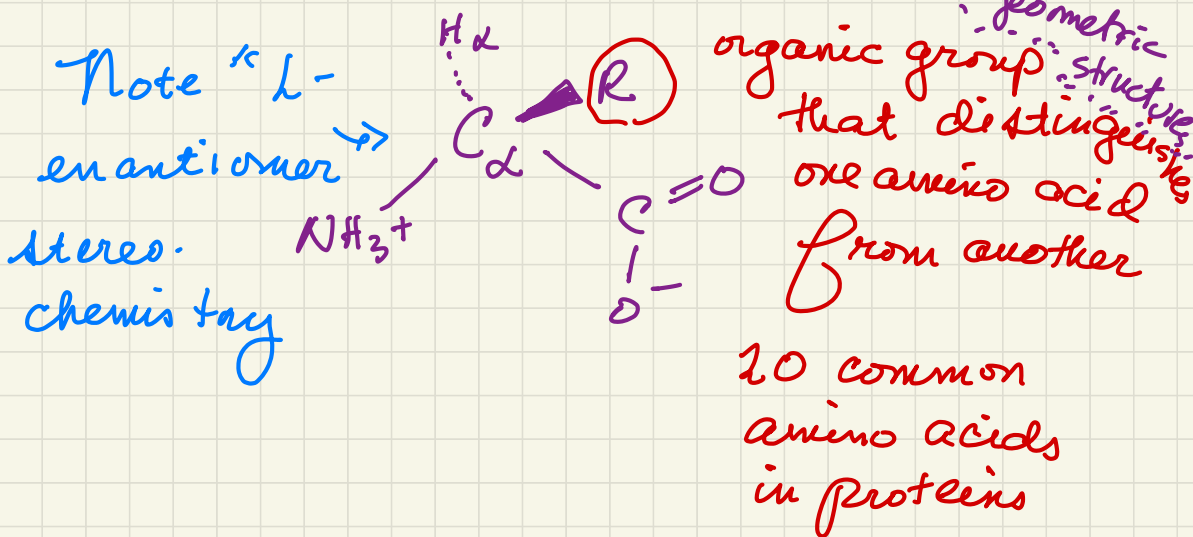 Note "L-
enantiomer
stereo.
chemistry
H α
C α
R
NH3+
C = O
O -
geometric
structure
organic group
that distinguishes
one amino acid
from another
20 common
amino acids
in proteins